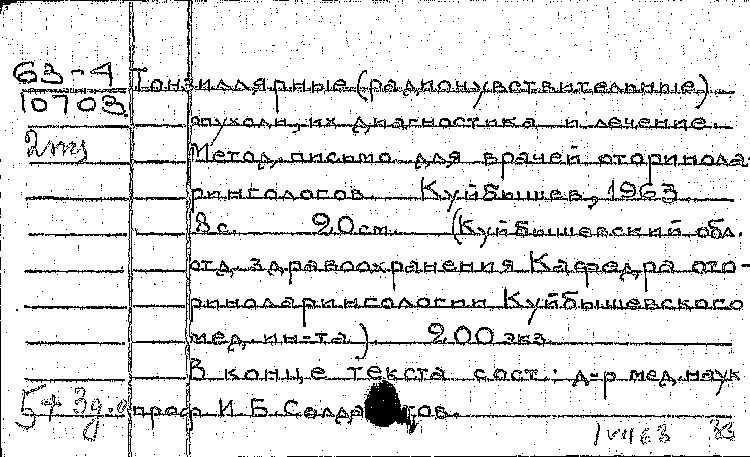 63-4 Тонзиллярные (радиочувствительные)
10703 опухоли, их диагностика и лечение.
Метод. письмо для врачей оторинола-
рингологов. Куйбышев, 1963.
8 с. 20 см. (Куйбышевский обл.
отд. здравоохранения Кафедра ото-
риноларингологии Куйбышевского
мед. ин-та). 200 экз.
В конце текста сост.: д-р мед. наук
проф. И. Б. Солдатов.